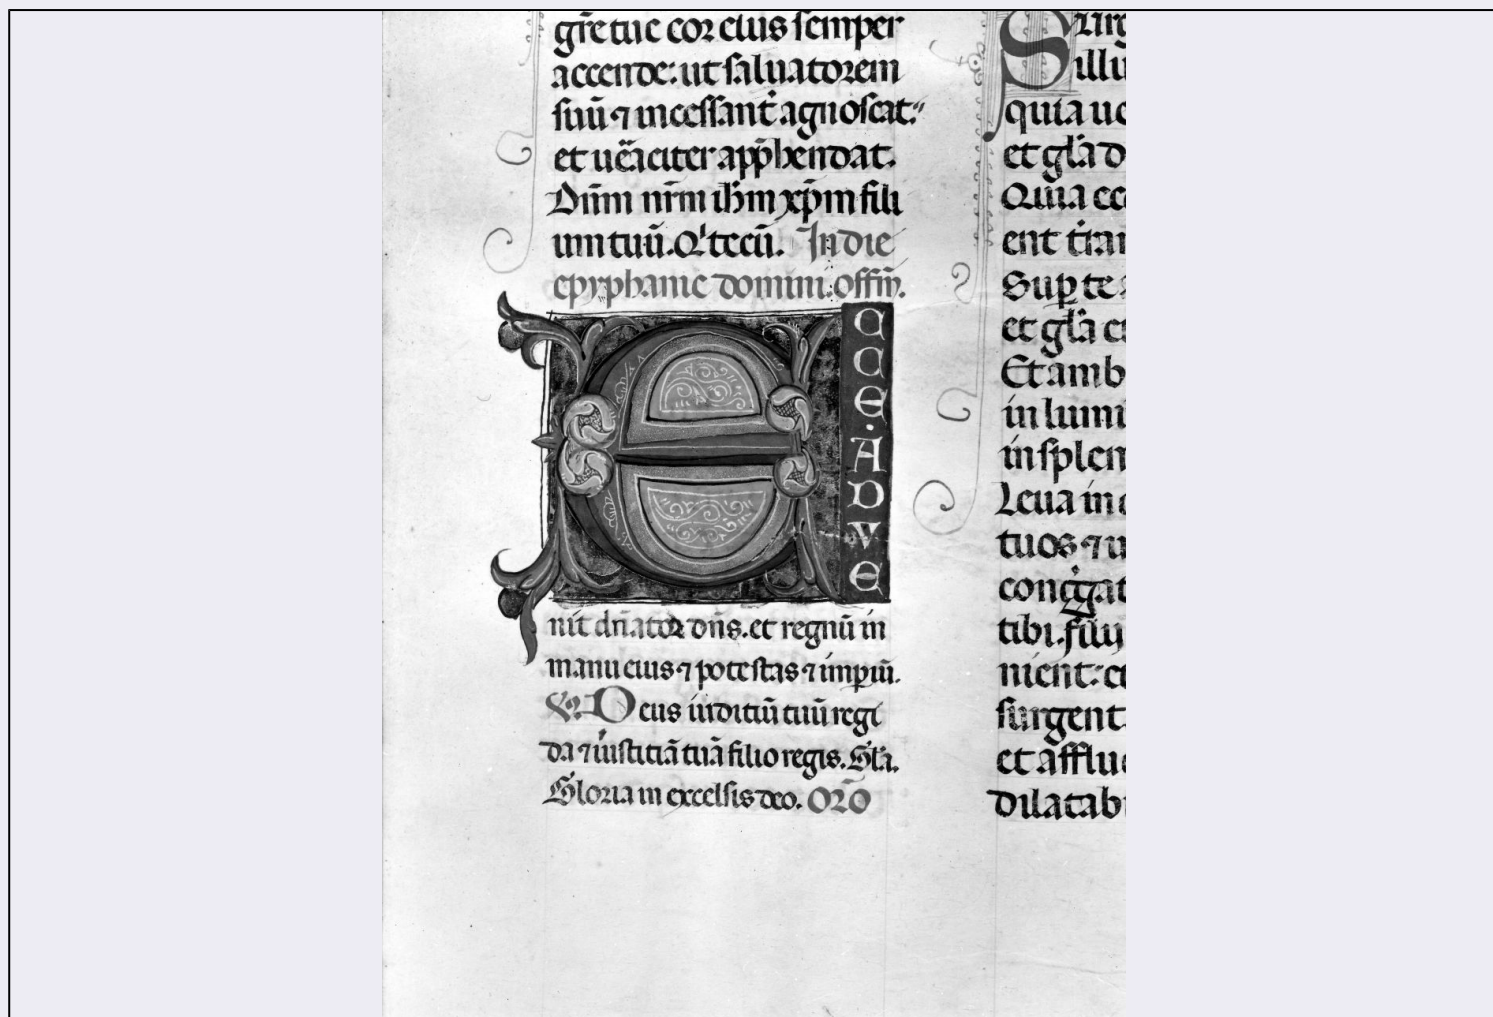 gr̄e tue cor eius semper
accende: ut saluatorem
suū ⁊ incessant̄ agnoscat.
et uēaciter app̄hendat.
Dn̄m nr̄m ih̄m xp̄m fili
um tuū. Q' tecū. In die
epyphanie domini. offm̄.
E
C
C
E.
A
D
V
E
nit dn̄ator dn̄s. et regnū in
manu eius ⁊ potestas ⁊ imp̄iū.
Deus iuditiū tuū regi
da ⁊ iustitiā tuā filio regis. Gl̄a.
Gloria in excelsis deo. Or̄o
Surg
illu
quia ue
et gl̄a d
Quia ecc
ent t̄ran
Sup te
et gl̄a ei
Et amb
in lumi
in splen
Leua in
tuos ⁊ u
conḡgat
tibi. filii
nient: et
surgent.
et afflue
dilatab